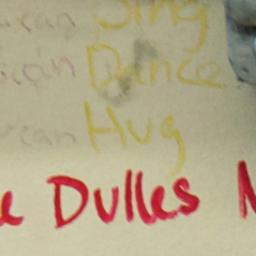 can Sing
can Dance
can Hug
e Dulles